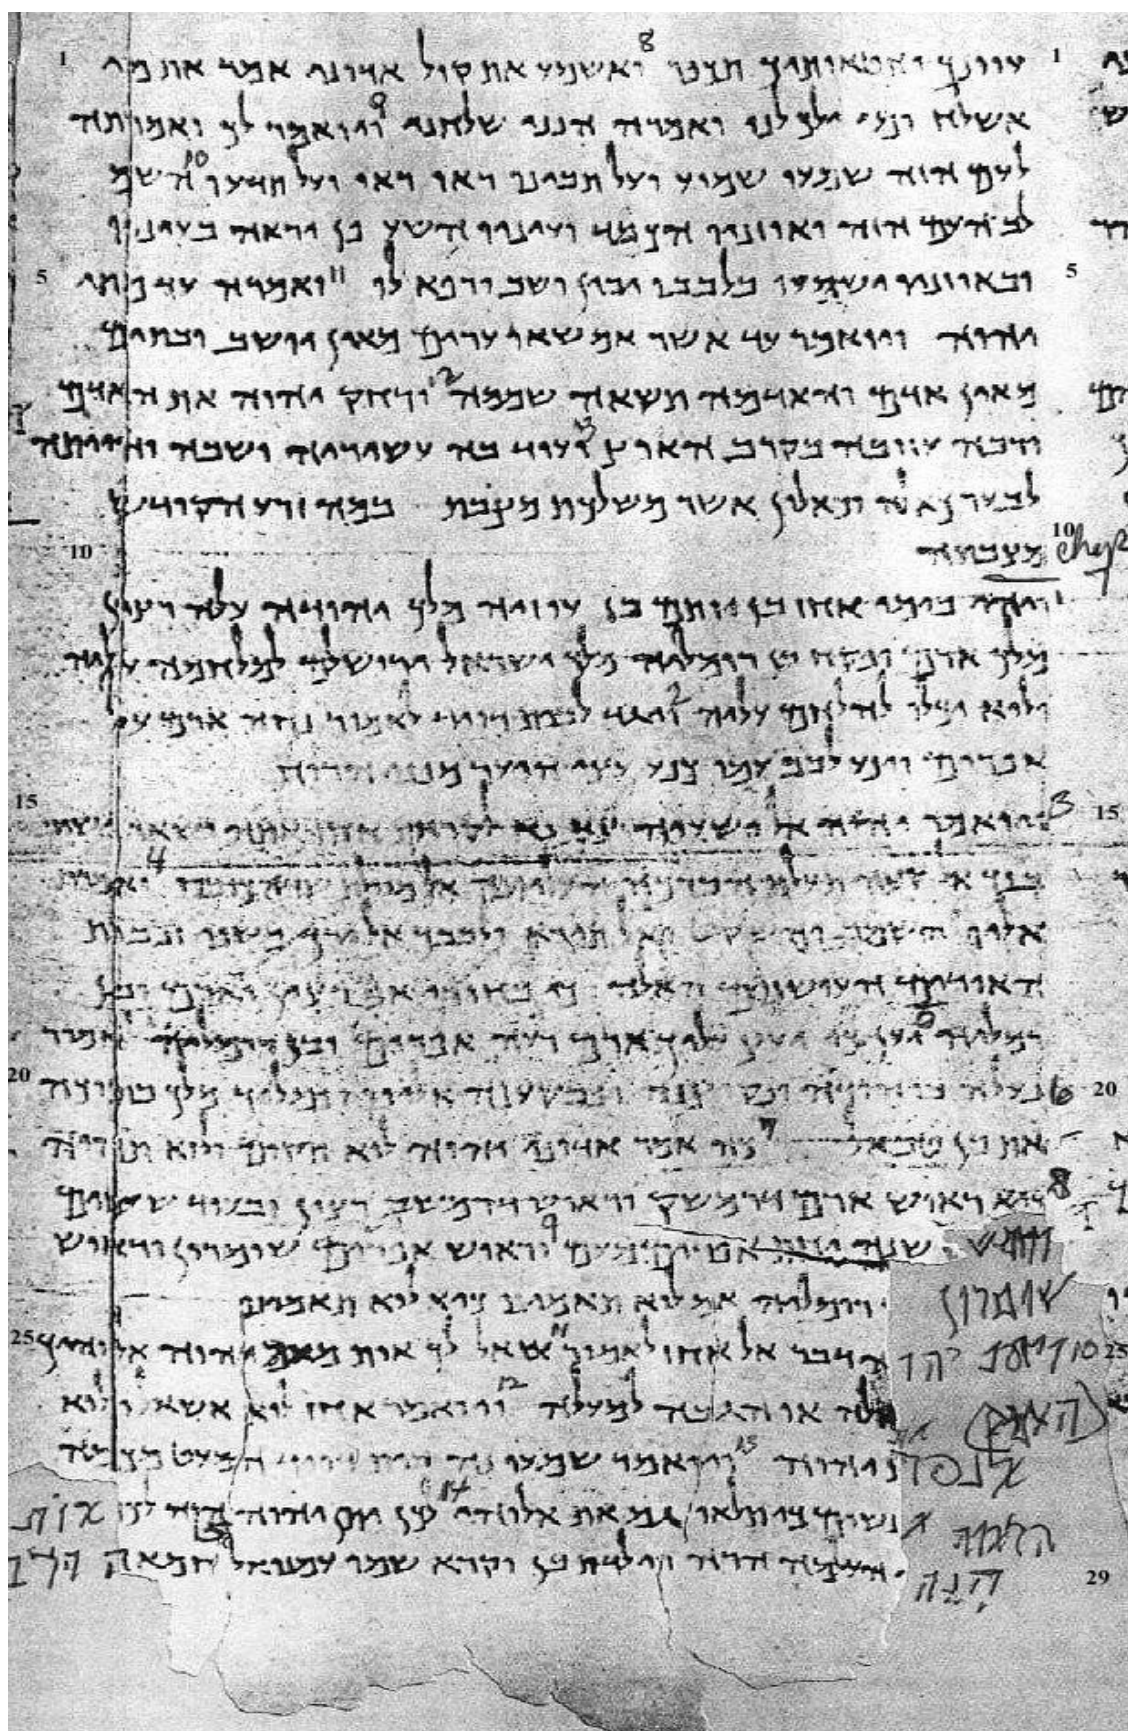 1 עוונך וחטאותיך תכפר 8 ואשמע את קול אדוני אמר את מי 1
אשלח ומי ילך לנו ואמרה הנני שלחני 9 ויואמר לך ואמרתה
לעם הזה שמעו שמוע ועל תבינו ראו ראו ועל תדעו 10 השמ
לב העם הזה ואוזניו הכבד ועיניו השע פן יראה בעיניו
5 ובאוזניו ישמעו בלבבו יבין ושב ורפא לו 11 ואמרה עד מתי 5
יהוה ויואמר עד אשר אם שאו ערים מאין יושב ובתים
מאין אדם והאדמה תשאה שממה 12 ורחק יהוה את האדם
ורבה עזובה בקרב הארץ 13 ועוד בה עשיריה ושבה והייתה
לבער כאלה וכאלון אשר משלכת מצבת במה זרע הקודש
10 chp7 מצבתה 10
1 ויהי בימי אחז בן יותם בן עוזיה מלך יהודה עלה רצין
מלך ארם ופקח בן רומליה מלך ישראל ירושלים למלחמה עליה
ולוא יכלו להלחם עליה 2 ויגד לבית דויד לאמור נחה ארם על
אפרים וינע לבבו עמו כנוע עצי היער מפני הרוח
15 3 ויואמר יהוה אל ישעיה צא נא לקראת אחז אתה ושאר ישוב 15
בנך אל קצה תעלת הברכה העליונה אל מסלת שדה 4
אליו השמר והשקט ואל תירא ולבבך אל ירך משני זנבות
האודים העושנים האלה כי בחורי אף רצין וארם ובן
רמליה 5 יען כי יעץ עליך ארם רעה אפרים ובן רומליה לאמור
20 6 נעלה ביהודה ונבקיענה אלינו ונמליך מלך בתוכה 20
את בן טבאל 7 כה אמר אדוני יהוה לוא תקום ולוא תהיה
8 כיא ראוש ארם דרמשק וראוש דרמשק רצין ובעוד ששים
וחמש שנה יחת אפרים מעם 9 וראוש אפרים שומרון וראוש
שומרון בן רומליה אם לוא תאמינו כיא לוא תאמנו
25 ויוסף יהוה דבר אל אחז לאמור 11 שאל לך אות מעם יהוה אלוהיך 25
(העמק) שאלה או הגבה למעלה 12 ויואמר אחז לוא אשאל ולוא
אנסה את יהוה 13 ויואמר שמעו נא בית דויד המעט מכמה
הלאות אנשים כי תלאו גם את אלוהי 14 לכן יתן יהוה הוא לכם אות
29 הנה העלמה הרה וילדת בן וקרא שמו עמנואל 15 חמאה